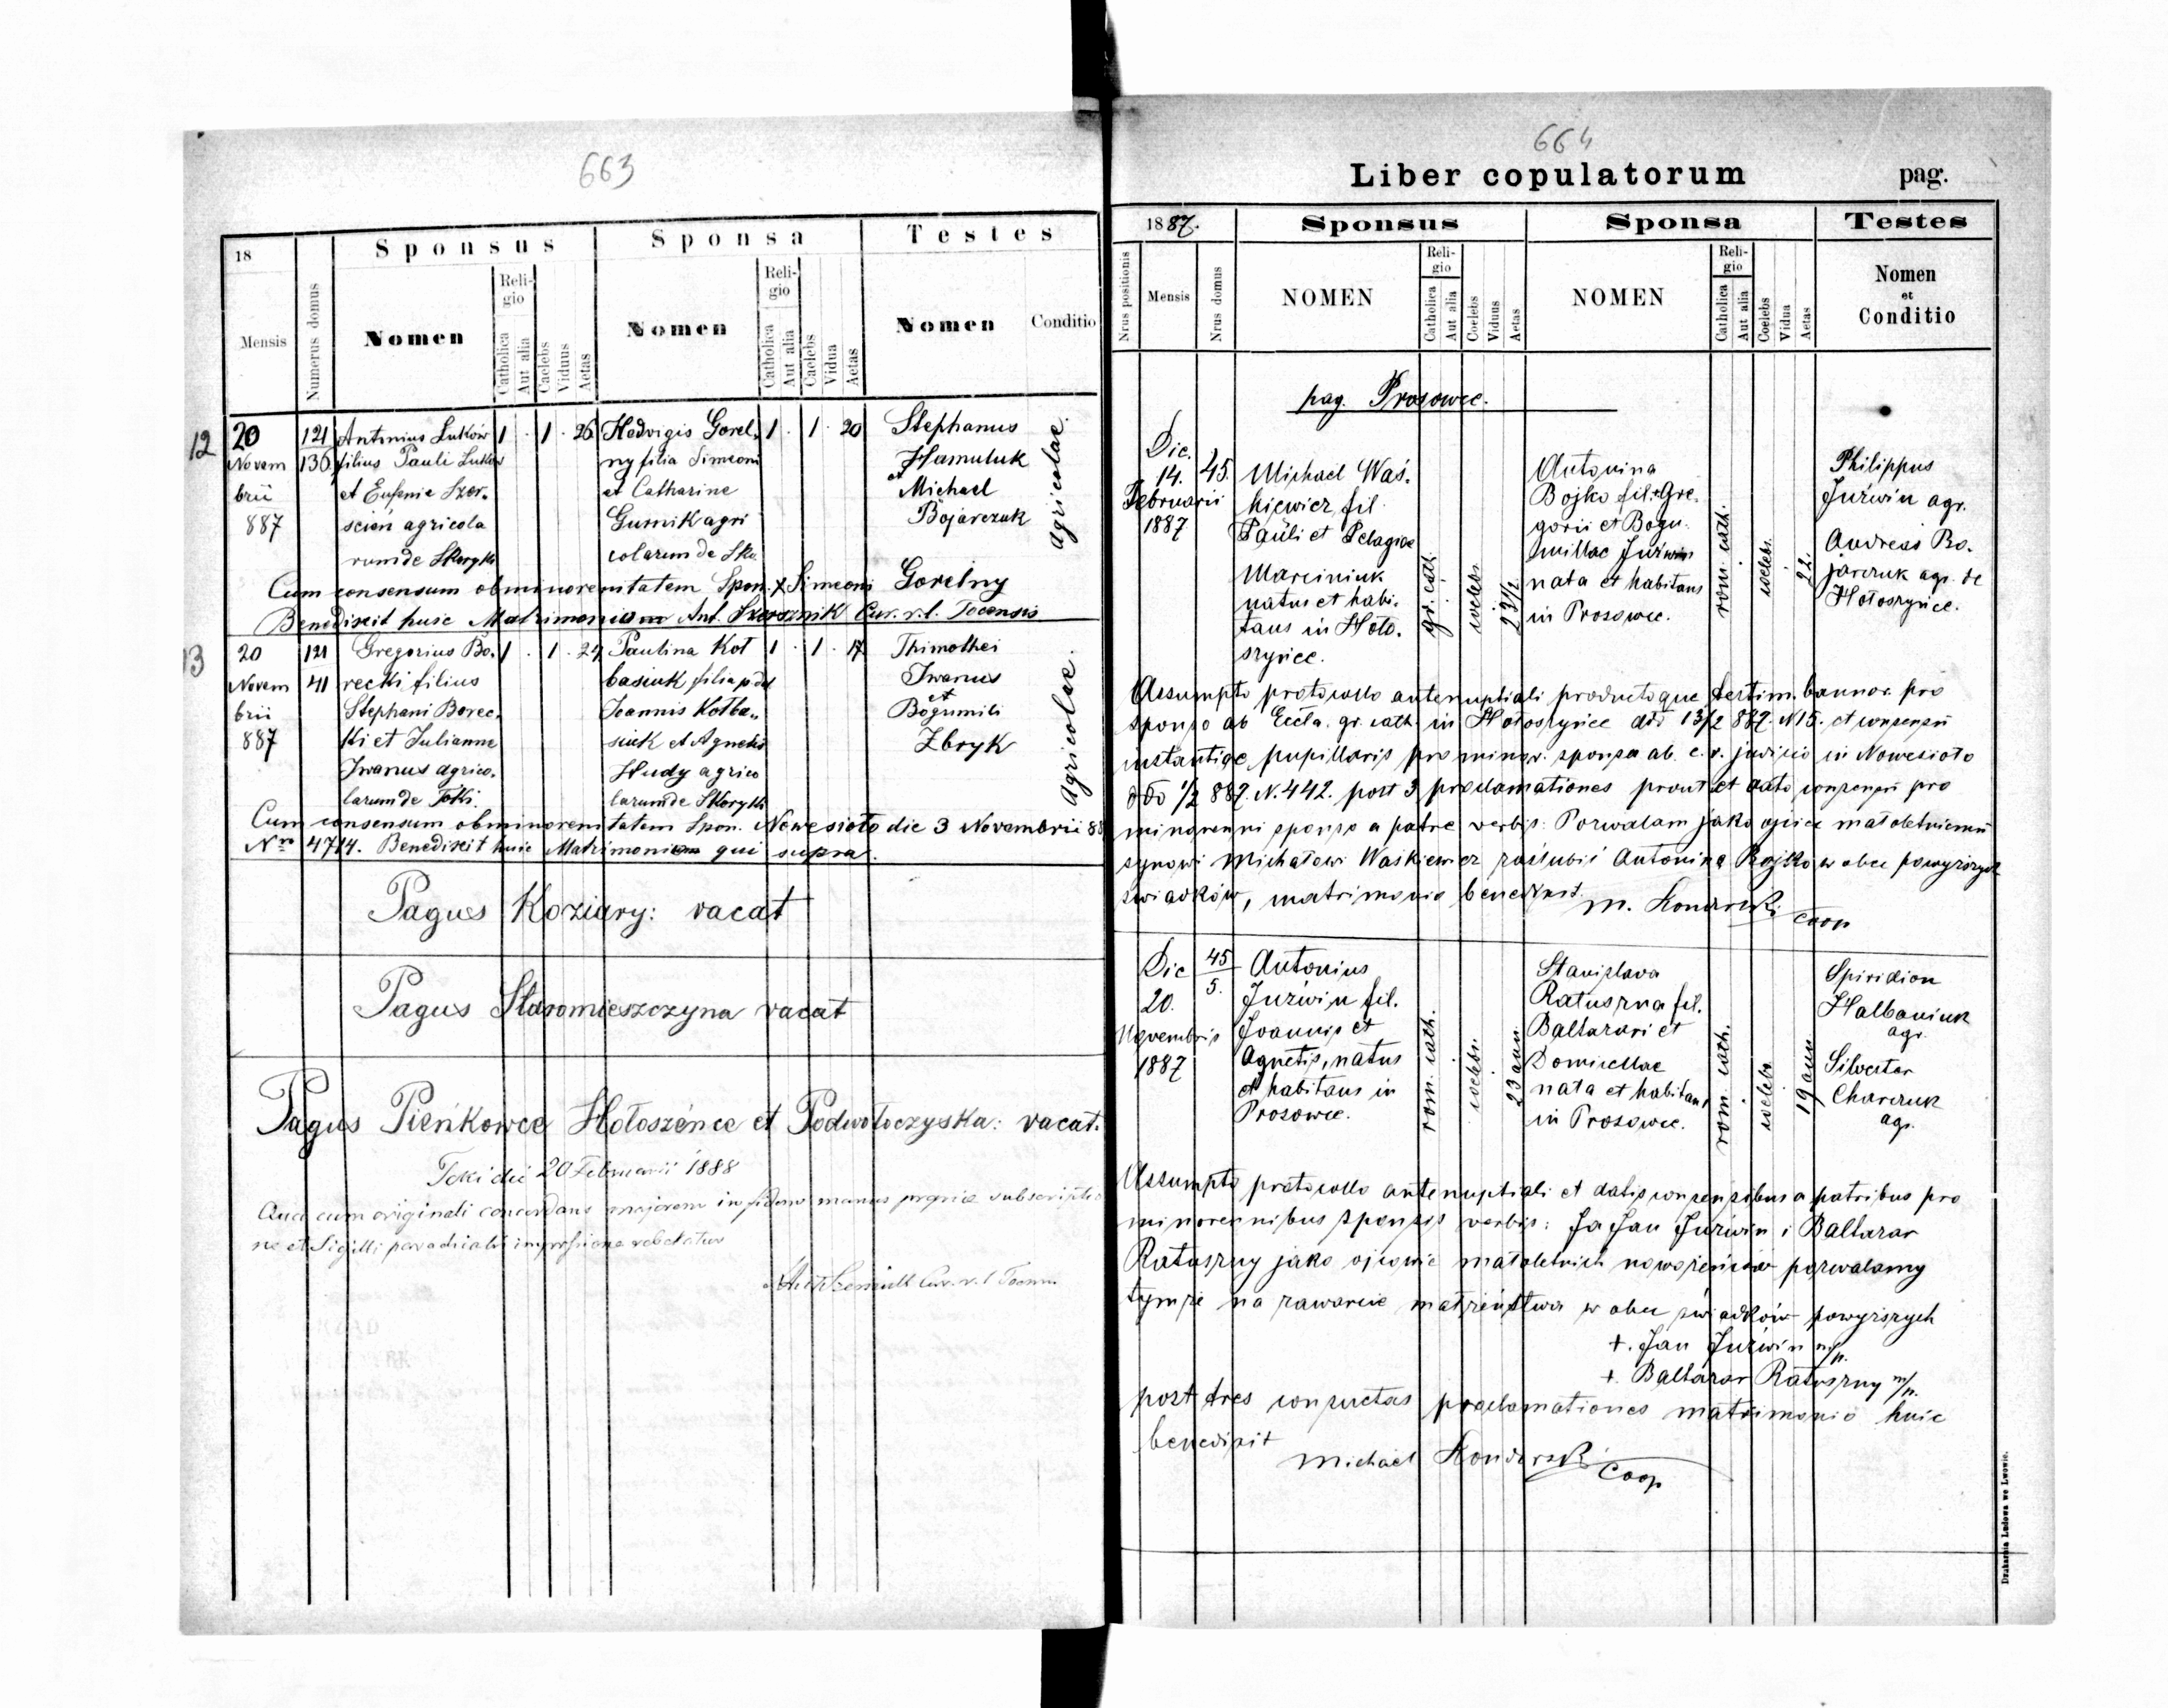 663
18
Sponsus
Sponsa
Testes
Mensis
Numerus domus
Nomen
Religio
Catholica
Aut alia
Caelebs
Viduus
Aetas
Nomen
Religio
Catholica
Aut alia
Caelebs
Vidua
Aetas
Nomen
Conditio
12 20 121 Antonius Łuków 1 . 1 . 26 Hedvigis Gorel„ 1 . 1 . 20 Stephanus
Novem 136 filius Pauli Łuków ny filia Simeoni Hamuluk
brii et Eufenie Szer„ et Catharine et Michael
887 scień agricola Gurnik agri Bojarczuk
rum de Skoryk colarum de Sko agricolae.
Cum consensum ob minorenitatem Spon. + Simeoni Gorelny
Benedixit huic Matrimoniom Ant. Cur. r. l. Tocensis
13 20 121 Gregorius Bo„ 1 . 1 . 24 Paulina Kot 1 . 1 . 17 Thimothei
Novem 41 recki filius basiuk filia Iwanus
brii Stephani Borec„ Joannis Kotba„ et Bogumili
887 ki et Julianne siuk et Agnetis Zbryk
Iwanus agrico„ Hudy agrico
larum de Toki larum de Skoryk agricolae.
Cum consensum ob minorenitatem Spon. Nowesioło die 3 Novembrii 88
Nro 4714. Benedixit huic Matrimoniom qui supra.
Pagus Koziary: vacat
Pagus Staromieszczyna vacat
Pagus Pieńkowce Hołoszénce et Podwołoczyska: vacat.
Toki die 20 Februarii 1888
Quae cum originali concordans majorem in fidem manus propriae subscriptio
ne et Sigilli parochialis impressione roboratur
Cur. r. l. Tocen.
664
Liber copulatorum pag.
1887.
Sponsus
Sponsa
Testes
Nrus positionis
Mensis
Nrus domus
NOMEN
Religio
Catholica
Aut alia
Coelebs
Viduus
Aetas
NOMEN
Religio
Catholica
Aut alia
Coelebs
Vidua
Aetas
Nomen
et
Conditio
pag. Prosowce.
Die 14. 45. Michael Waś„ Antonina Philippus
Februarii kiewicz, fil. Bojko fil. Gre„ Juźwin agr.
1887 Pauli et Pelagiae gorii et Bogu„ Andreas Bo„
Marciniuk millae Juźwin jarczuk agr. de
natus et habi„ nata et habitans Hołoszyńce.
tans in Hoło„ in Prosowce.
szyńce.
gr. cath. coelebs 23½ rom. cath. coelebs. 22.
Assumpto protocollo antenuptiali productoque testim. bannor. pro
sponso ab Eccla. gr. cath. in Hołoszyńce ddo 13/2 887. N 15. et consensu
instantiae pupillaris pro minor. sponsa ab c. r. judicio in Nowesioło
ddo ½ 887. N. 442. post 3 proclamationes prout et dato consensu pro
minorenni sponso a patre verbis: Pozwalam jako ojciec małoletniemu
synowi Michałowi Waśkiewicz zaślubić Antoninę Bojko w obec powyższych
świadków, matrimonio benedixit.
M. Konarski Coop
Die 45/5. Antonius Stanislava Spiridion
20. Juźwin fil. Ratuszna fil. Halbaniuk
Novembris Joannis et Baltazari et agr.
1887 Agnetis, natus Domicellae Silvester
et habitans in nata et habitans Charczuk
Prosowce. in Prosowce. agr.
rom. cath. coelebs. 23 ann. rom. cath. coelebs 19 ann
Assumpto protocollo antenuptiali et datis consensibus a patribus pro
minorennibus sponsis verbis: Ja Jan Juźwin i Baltazar
Ratuszny jako ojcowie małoletnich nowożeńców pozwalamy
tymże na zawarcie małżeństwa w obec świadków powyższych
+. Jan Juźwin m/p.
+. Baltazar Ratuszny m/p.
post tres consuetas proclamationes matrimonio huic
benedixit
Michael Konarski Coop
Drukarnia Ludowa we Lwowie.